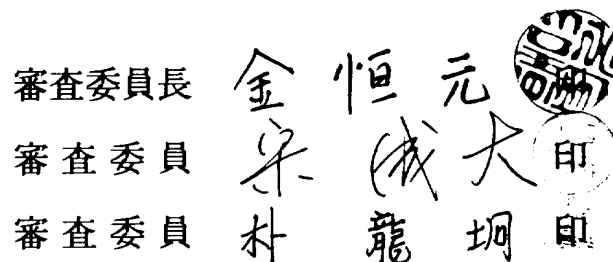 審査委員長 金 恒 元 印
審査委員 宋 成 大 印
審査委員 朴 龍 坰 印